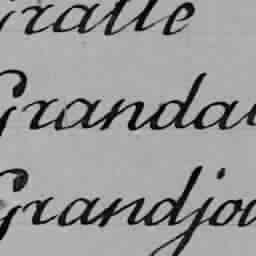 Gratte
Granda
Grandjo